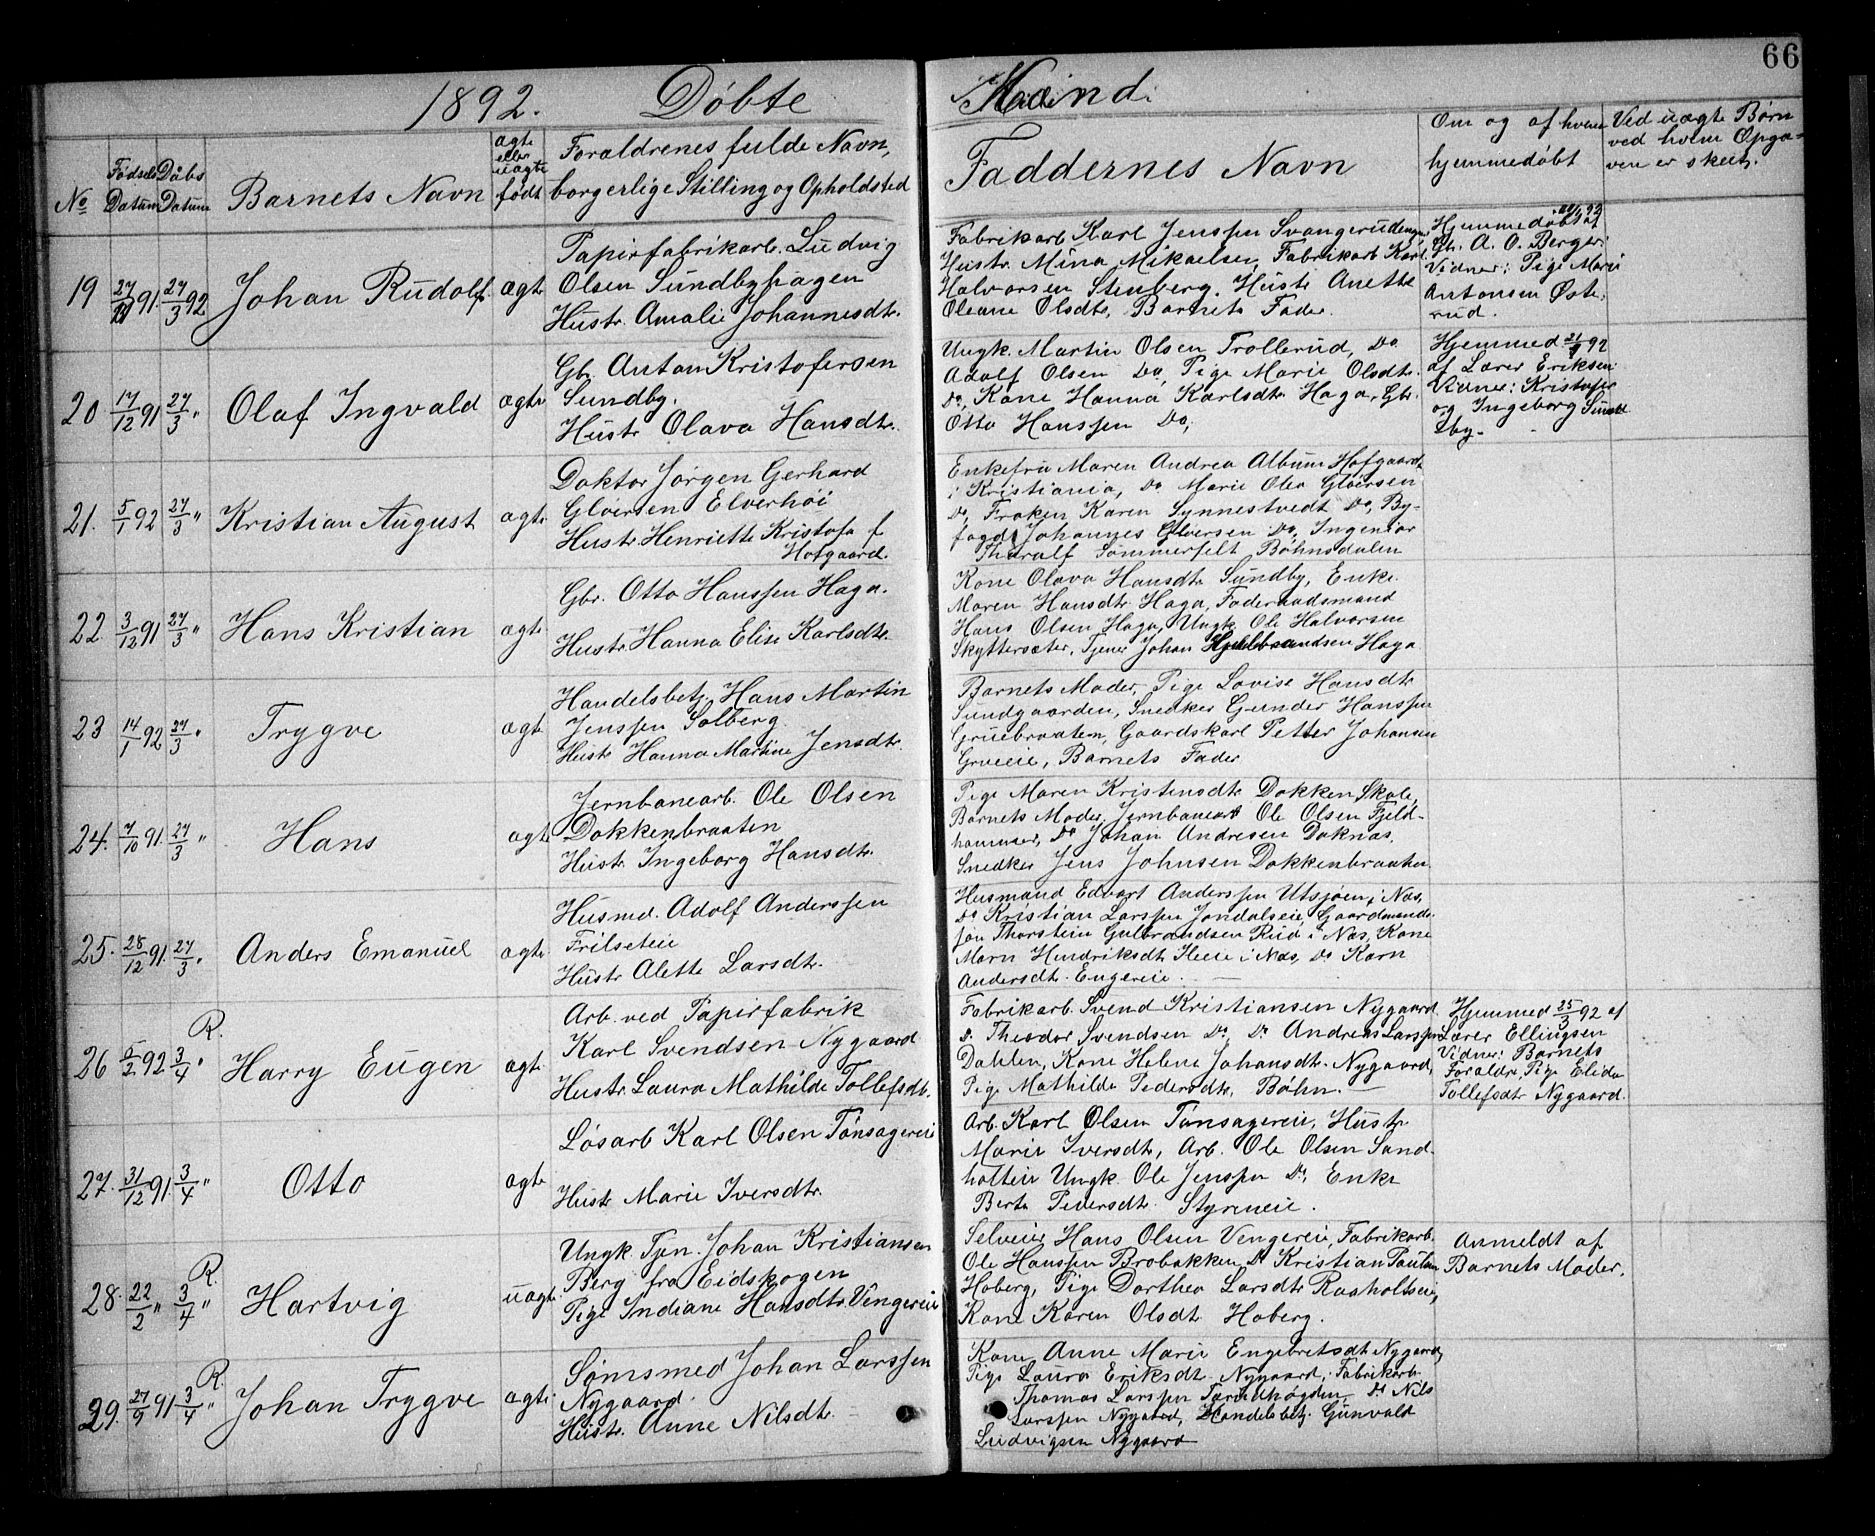 66
1892. Døbte Mænd.
No
Fødsels Datum
Daabs Datum
Barnets Navn
ægte eller uægte født
Forældrenes fulde Navn,
borgerlige Stilling og Opholdsted
Faddernes Navn
Om og af hvem
hjemmedøbt
Ved uægte Børn
ved hvem Opga-
ven er skeet.
19 91. 27/3 92 Johan Rudolf. ægte
Papirfabrikarb. Ludvig
Olsen Sundbyhagen
Hustr. Amalie Johannesdtr.
Fabrikarb Karl Jenssen
Hustr. Mina Mikaelsen, Fabrikarb Karl
Halvorsen Stenberg. Hustr Anette
Oleane Olsdtr, Barnets Fader.
Hjemmedøbt af
Gbr. A. O. Berger
Vidner: Pige Marie
Antonsen Øste-
rud.
20 17/12 91 27/3 " Olaf Ingvald ægte
Gbr. Anton Kristofersen
Sundby.
Hustr Olava Hansdtr.
Ungk. Martin Olsen Trollerud, Do
Adolf Olsen Do, Pige Marie Olsdtr.
Do, Kone Hanna Karlsdtr Haga, Gbr.
Otto Hanssen Do,
Hjemmed 92
af Lærer Eriksen
Vidner: Kristofer
og Ingeborg Sund
by.
21. 5/1 92 27/3 " Kristian August ægte
Doktor Jørgen Gerhard
Gløersen Elverhøi
Hustr Henriette Kristofa f
Hofgaard.
Enkefru Maren Andrea Album Hofgaard
i Kristiania, Do Marie Olea Gløersen
Do, Frøken Karen Synnestvedt Do, By-
fogd Johannes Gløersen Do, Ingeniør
Tharalf Sømmerfelt Bøhnsdalen
22 3/12 91 27/3 " Hans Kristian ægte
Gbr. Otto Hanssen Haga.
Hustr. Hanna Elise Karlsdtr.
Kone Olava Hansdtr Sundby, Enke
Maren Hansdtr Haga, Føderaadsmand
Hans Olsen Haga, Ungk. Ole Halvorsen
Skyttersæter, Tjener Johan Hjulbrandsen Haga
23 14/1 92 27/3 " Trygve ægte
Handelsbetj. Hans Martin
Jenssen Solberg
Hustr Hanna Martine Jensdtr.
Barnets Moder, Pige Lovise Hansdtr
Sundgaarden, Snedker Gunder Hanssen
Gruebraaten, Gaardskarl Petter Johansen
Grueeie, Barnets Fader
24. 7/10 91. 27/3 " Hans ægte
Jernbanearb. Ole Olsen
Dokkenbraaten
Hustr. Ingeborg Hansdtr.
Pige Maren Kristensdtr Dokken Skole,
Barnets Moder, Jernbanearb Ole Olsen Fjeld-
hammer, Do Johan Andresen Doknæs,
Snedker Jens Johnsen Dokkenbraaten
25. 28/12 91. 27/3 " Anders Emanuel ægte
Husmd. Adolf Anderssen
Frilseteie
Hustr Alette Larsdtr.
Husmand Edvart Anderssen Utsjøen i Næs,
Do Kristian Larssen Jondalseie, Gaardmands-
søn Thorstein Gulbrandsen Rud i Næs, Kone
Marn Hendriksdtr Heie i Næs, Do Karn
Andersdtr. Engereie.
26 5/2 92 3/4 " R. Harry Eugen ægte
Arb. ved Papirfabrik
Karl Svendsen Nygaard
Hustr. Laura Mathilde Tollefsdtr.
Fabrikarb. Svend Kristiansen Nygaard
D. Theodor Svendsen Do, Do Andreas Larssen
Dahlen, Kone Helene Johansdtr. Nygaard,
Pige Mathilde Pedersdtr, Bøhn.
Hjemmed 25/3 92 af
Lærer Ellingsen
Vidner: Barnets
Forældre, Pige Elida
Tollefsdtr Nygaard.
27. 31/12 91. 3/4 " Otto ægte
Løsarb Karl Olsen Tønsagereie
Hustr Marie Iversdtr.
Arb. Karl Olsen Tønsagereie, Hustr
Marie Iversdtr, Arb. Ole Olsen Sand-
holteie Ungk. Ole Jenssen Do, Enke
Berte Pedersdtr. Styreneie.
28. 22/2 " 3/4 " R. Hartvig uægte
Ungk. Tjen. Johan Kristiansen
Berg fra Eidskogen
Pige Indiane Hansdtr Vengereie
Selveier Hans Olsen Vengereie, Fabrikarb.
Ole Hanssen Brobakken, Do Kristian Paulsen
Hoberg, Pige Dorthea Larsdtr Raaholtseie,
Kone Karen Olsdtr Hoberg.
Anmeldt af
Barnets Moder.
29. 27/9 91 3/4 " R. Johan Trygve ægte
Sømsmed Johan Larssen
Nygaard.
Hustr. Anne Nilsdtr.
Kone Anne Marie Engebretsdtr Nygaard,
Pige Laura Eriksdtr. Nygaard, Fabrikarb.
Thomas Larssen Do Nils
Larssen Nygaard, Handelsbetj. Gunvald
Ludvigsen Nygaard